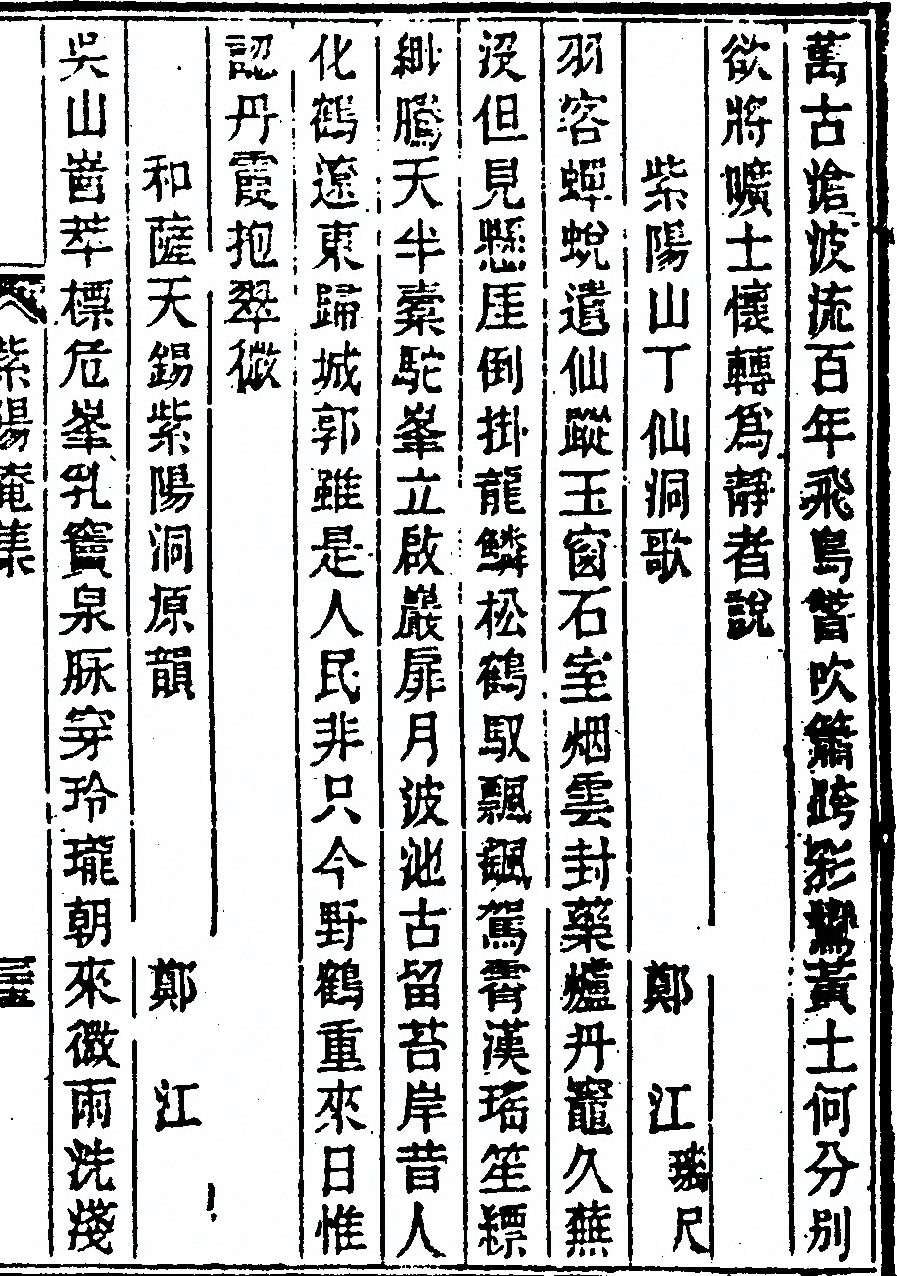 萬古滄波流百年飛鳥瞥吹簫跨彩鸞黃土何分別
欲將曠士懷轉爲靜者說
紫陽山丁仙洞歌　鄭江璣尺
羽客蟬蛻遺仙蹤玉窗石室烟雲封藥爐丹竈久蕪
沒但見懸厓倒掛龍鱗松鶴馭飄颻駕霄漢瑤笙縹
緲騰天半橐駝峯立啟巖扉月波池古留苔岸昔人
化鶴遼東歸城郭雖是人民非只今野鶴重來日惟
認丹霞抱翠微
和薩天錫紫陽洞原韻　鄭江
吳山崷崒標危峯乳竇泉脉穿玲瓏朝來微雨洗淺
紫陽庵集